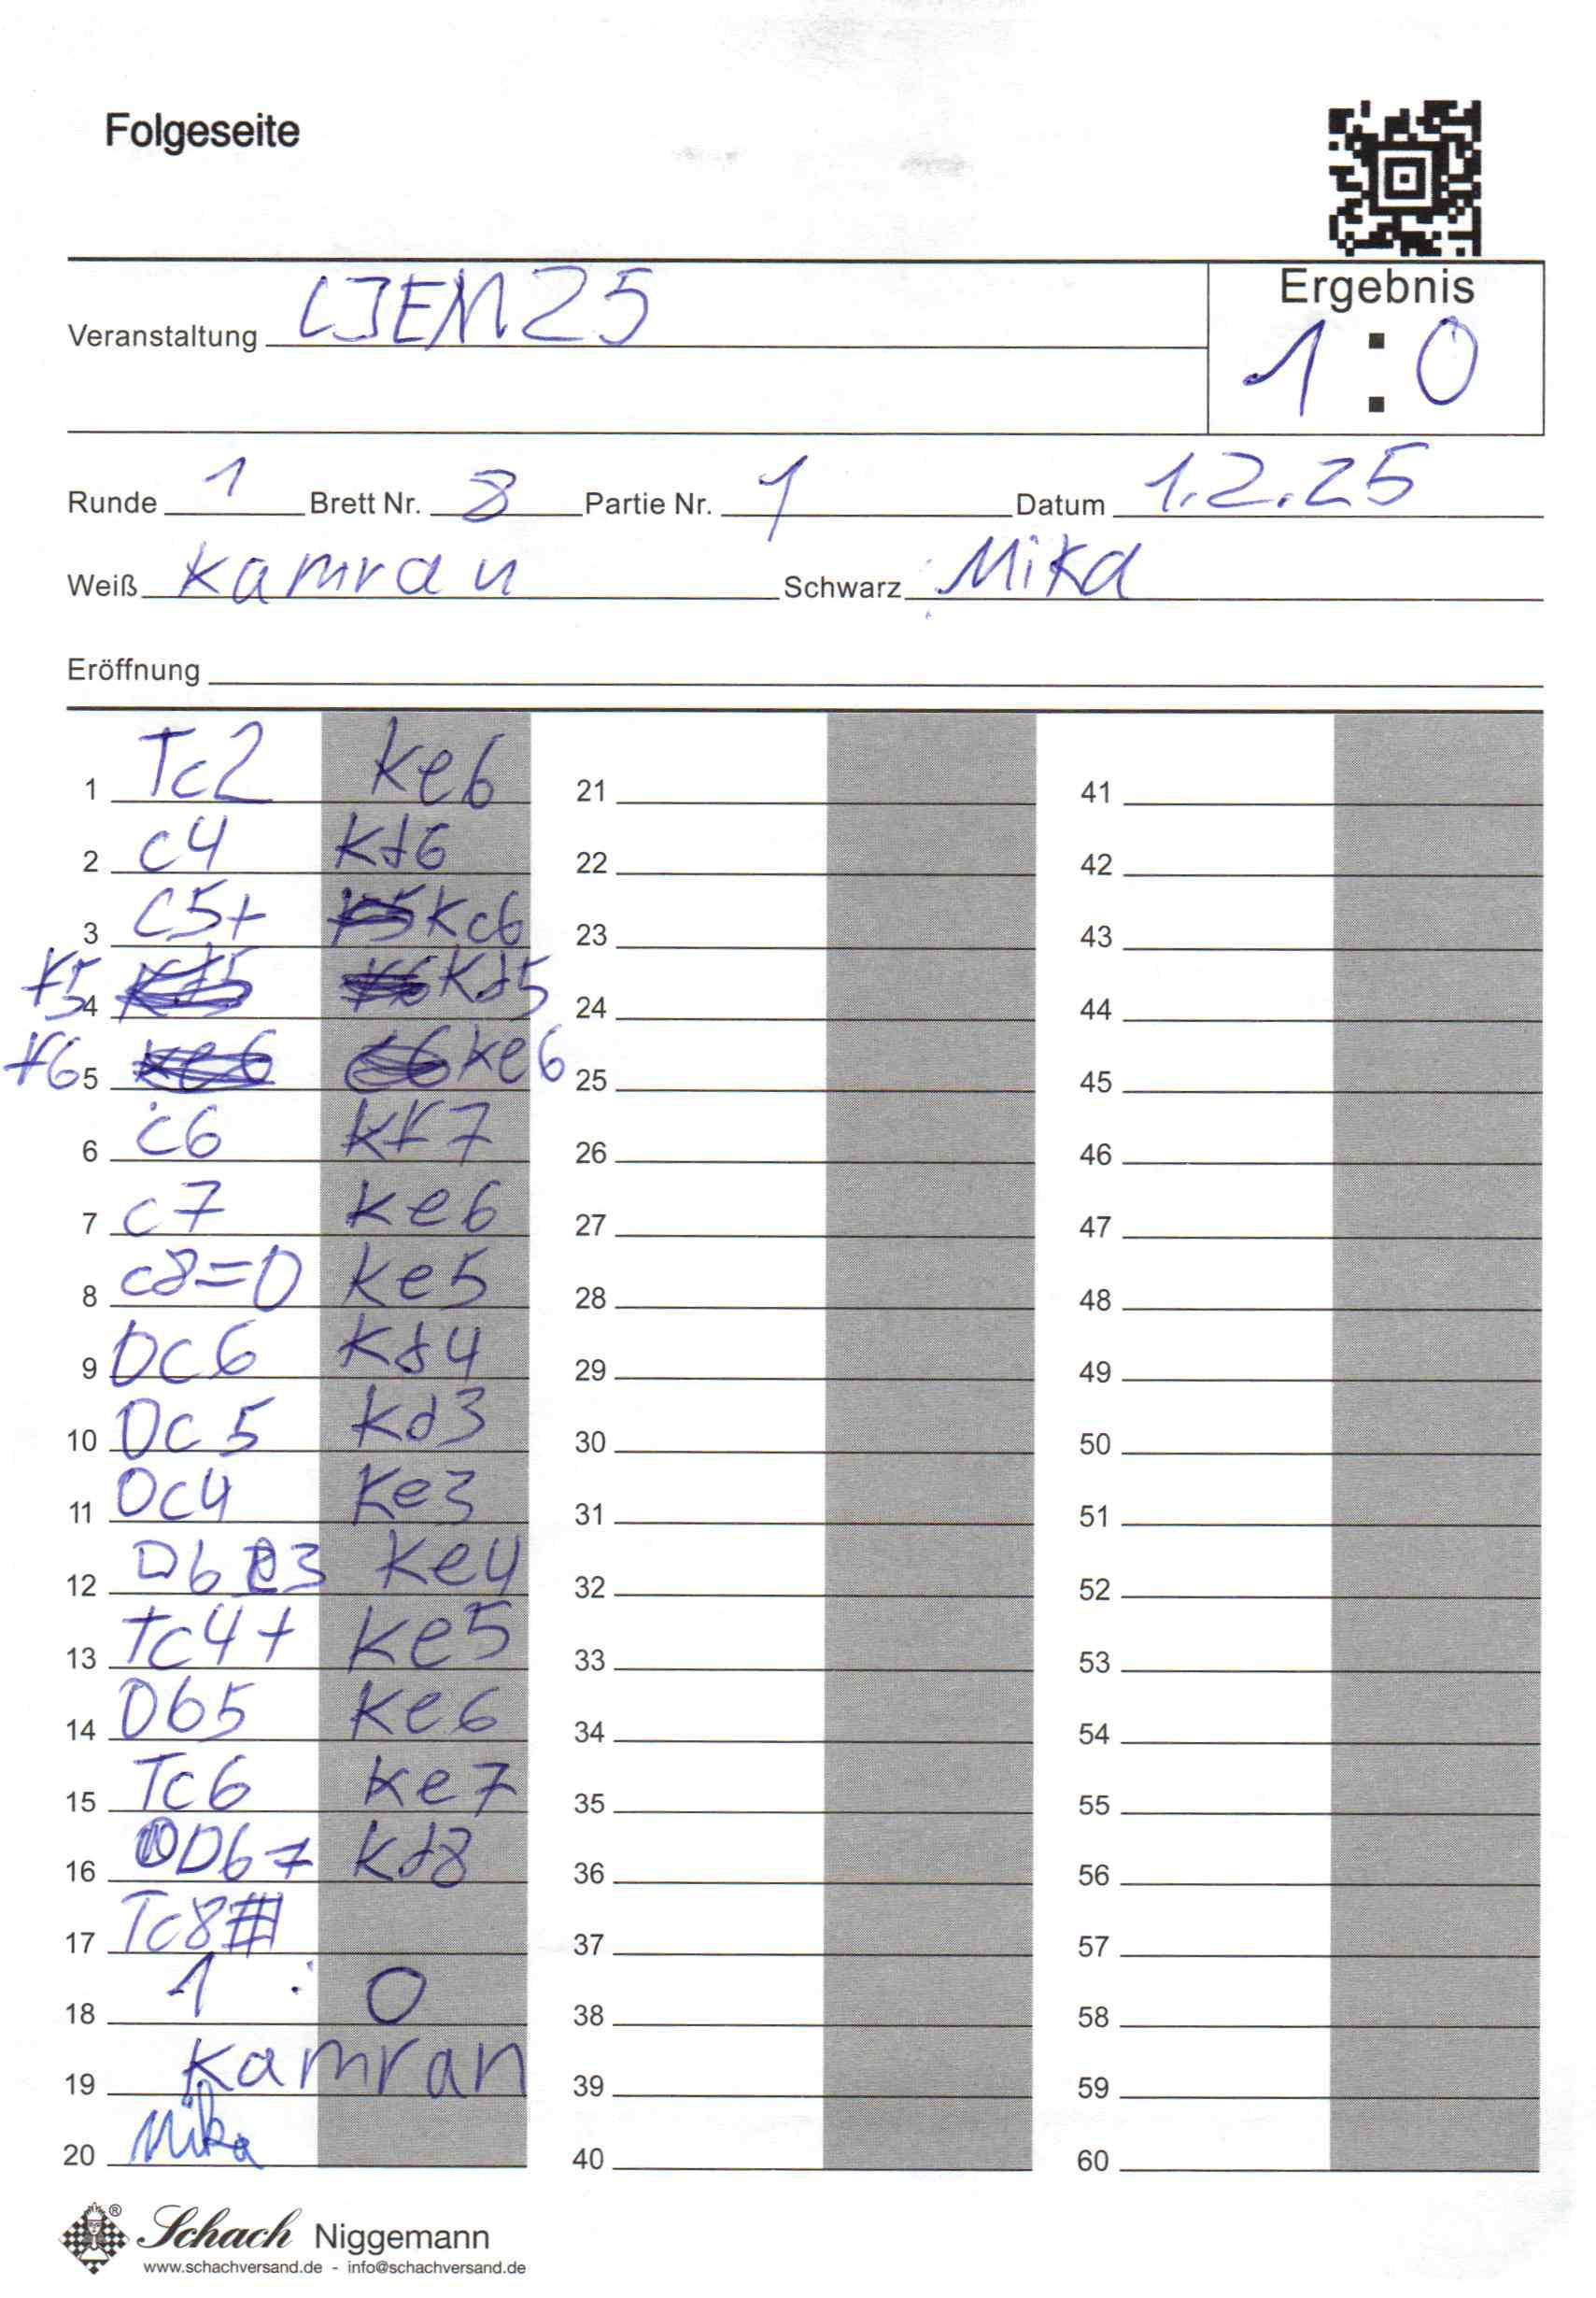 Folgeseite
Ergebnis
Veranstaltung LJEM25
1 : 0
Runde 1 Brett Nr. 8 Partie Nr. 1 Datum 1.2.25
Weiß Kamran Schwarz Mika
Eröffnung
1 Tc2 Ke6 21 41
2 c4 Kd6 22 42
3 c5+ Kc6 23 43
f5 4 Kd5 24 44
f6 5 Ke6 25 45
6 c6 Kf7 26 46
7 c7 Ke6 27 47
8 c8=D Ke5 28 48
9 Dc6 Kd4 29 49
10 Dc5 Kd3 30 50
11 Dc4 Ke3 31 51
12 Db3 Ke4 32 52
13 Tc4+ Ke5 33 53
14 Db5 Ke6 34 54
15 Tc6 Ke7 35 55
16 Db7 Kd8 36 56
17 Tc8# 37 57
18 1 : 0 38 58
19 Kamran 39 59
20 Mika 40 60
Schach Niggemann
www.schachversand.de - info@schachversand.de